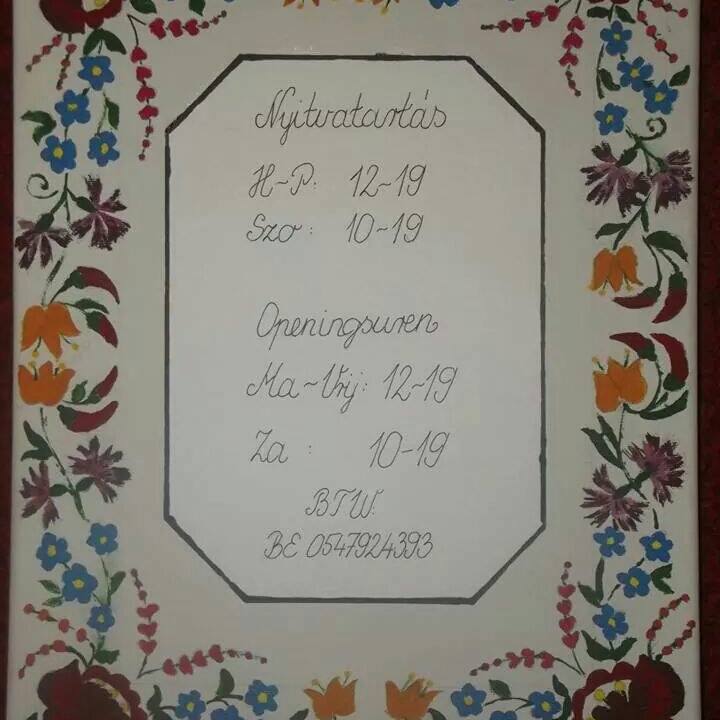 Nyitvatartás
H-P: 12-19
Szo: 10-19
Openingsuren
Ma-Vrij: 12-19
Za: 10-19
BTW:
BE 0547924393